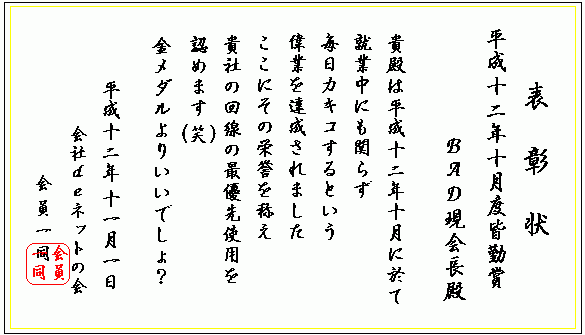 表彰状
平成十二年十月度皆勤賞
BAD現会長殿
貴殿は平成十二年十月に於て
就業中にも関らず
毎日カキコするという
偉業を達成されました
ここにその栄誉を称え
貴社の回線の最優先使用を
認めます(笑)
金メダルよりいいでしょ?
平成十二年十一月一日
会社deネットの会
会員一同
会員一同